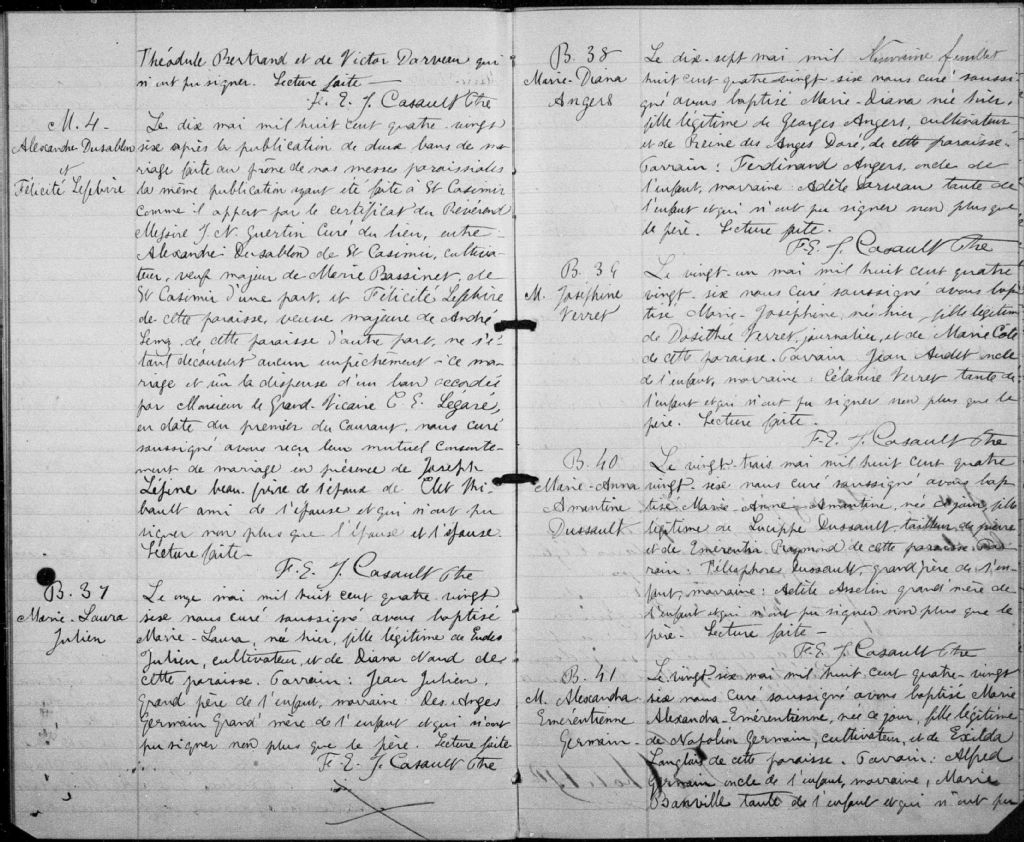 Théodule Bertrand et de Victor Darveau qui
n'ont pu signer. Lecture faite —
F. E. J. Casault Ptre
M. 4 -
Alexandre Dusablon
et
Félicité Lefebvre
Le dix mai mil huit cent quatre-vingt
six après la publication de deux bans de ma-
riage faite au prône de nos messes paroissiales
la même publication ayant été faite à St Casimir
comme il appert par le certificat du Révérend
Messire J. N. Guertin Curé du lieu, entre
Alexandre Dusablon de St Casimir, cultiva-
teur, veuf majeur de Marie Bassinet, de
St Casimir d'une part, et Félicité Lefebvre
de cette paroisse, veuve majeure de André
de cette paroisse d'autre part, ne s'é-
tant découvert aucun empêchement à ce ma-
riage et vu la dispense d'un ban accordée
par Monsieur le Grand-Vicaire C. E. Legaré,
en date du premier du Courant, nous curé
soussigné avons reçu leur mutuel consente-
ment de mariage en présence de Joseph
Lépine beau-frère de l'époux de Clet Thi-
bault ami de l'épouse et qui n'ont pu
signer non plus que l'époux et l'épouse.
Lecture faite —
F. E. J. Casault Ptre
B. 37
Marie-Laura
Julien
Le onze mai mil huit cent quatre-vingt
six nous curé soussigné avons baptisé
Marie-Laura, née hier, fille légitime de Eudes
Julien, cultivateur, et de Diana Naud de
cette paroisse. Parrain: Jean Julien,
Grand père de l'enfant, marraine: Des Anges
Germain Grand'mère de l'enfant et qui n'ont
pu signer non plus que le père. Lecture faite
F. E. J. Casault Ptre
B. 38
Marie-Diana
Angers
Neuvième feuillet
Le dix-sept mai mil
huit cent quatre vingt-six nous curé soussi-
gné avons baptisé Marie-Diana née hier,
fille légitime de Georges Angers, cultivateur
et de Reine des Anges Doré, de cette paroisse.
Parrain: Ferdinand Angers, oncle de
l'enfant, marraine: Adèle Darveau tante de
l'enfant et qui n'ont pu signer non plus que
le père. Lecture faite.
F. E. J. Casault Ptre
B. 39
M. Joséphine
Verret
Le vingt-un mai mil huit cent quatre
vingt-six nous curé soussigné avons bap-
tisé Marie-Joséphine, née hier, fille légitime
de Dosithée Verret, journalier, et de Marie Coté
de cette paroisse. Parrain Jean Audet oncle
de l'enfant, marraine: Célanire Verret tante de
l'enfant et qui n'ont pu signer non plus que le
père. Lecture faite.
F. E. J. Casault Ptre
B. 40
Marie-Anna
Amantine
Dussault
Le vingt-trois mai mil huit cent quatre
vingt-six nous curé soussigné avons bap-
tisé Marie-Anne Amantine, née ce jour, fille
légitime de Lucippe Dussault tailleur de pierre
et de Emérentia Raymond de cette paroisse. Par-
rain: Télesphore Dussault, grand père de l'en-
fant, marraine: Asselin grand'mère de
l'enfant et qui n'ont pu signer non plus que le
père. Lecture faite —
F. E. J. Casault Ptre
B. 41
M. Alexandra
Emérentienne
Germain -
Le vingt six mai mil huit cent quatre-vingt
six nous curé soussigné avons baptisé Marie
Alexandra-Emérentienne, née ce jour, fille légitime
de Napoléon Germain, cultivateur, et de Exilda
Langlais de cette paroisse. Parrain: Alfred
Germain oncle de l'enfant, marraine, Marie
Banville tante de l'enfant et qui n'ont pu